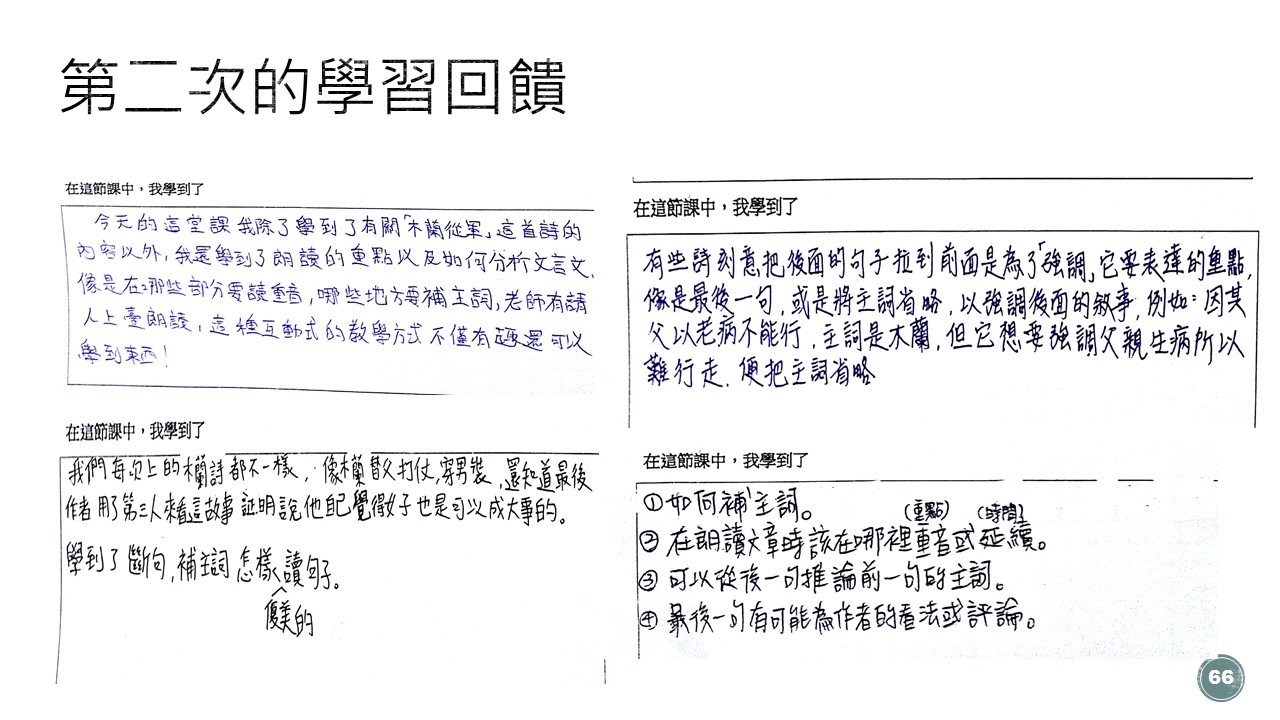 第二次的學習回饋
在這節課中，我學到了
今天的這堂課我除了學到了有關「木蘭從軍」這首詩的
內容以外，我還學到了朗讀的重點以及如何分析文言文，
像是在哪些部分要讀重音，哪些地方要補主詞，老師有請
人上臺朗讀，這種互動式的教學方式不僅有趣還可以
學到東西！
在這節課中，我學到了
我們每次上的木蘭詩都不一樣，像木蘭替父打仗，穿男裝，還知道最後
作者用了第三人來看這故事証明說他自己覺得女子也是可以成大事的。
學到了斷句，補主詞怎樣讀句子。
優美的
在這節課中，我學到了
有些詩刻意把後面的句子拉到前面是為了「強調」它要表達的重點，
像是最後一句，或是將主詞省略，以強調後面的敘事，例如：因其
父以老病不能行，主詞是木蘭，但它想要強調父親生病所以
難行走，便把主詞省略
在這節課中，我學到了
①如何補主詞。
(重點) (時間)
②在朗讀文章時該在哪裡重音或延續。
③可以從後一句推論前一句的主詞。
④最後一句有可能為作者的看法或評論。
66